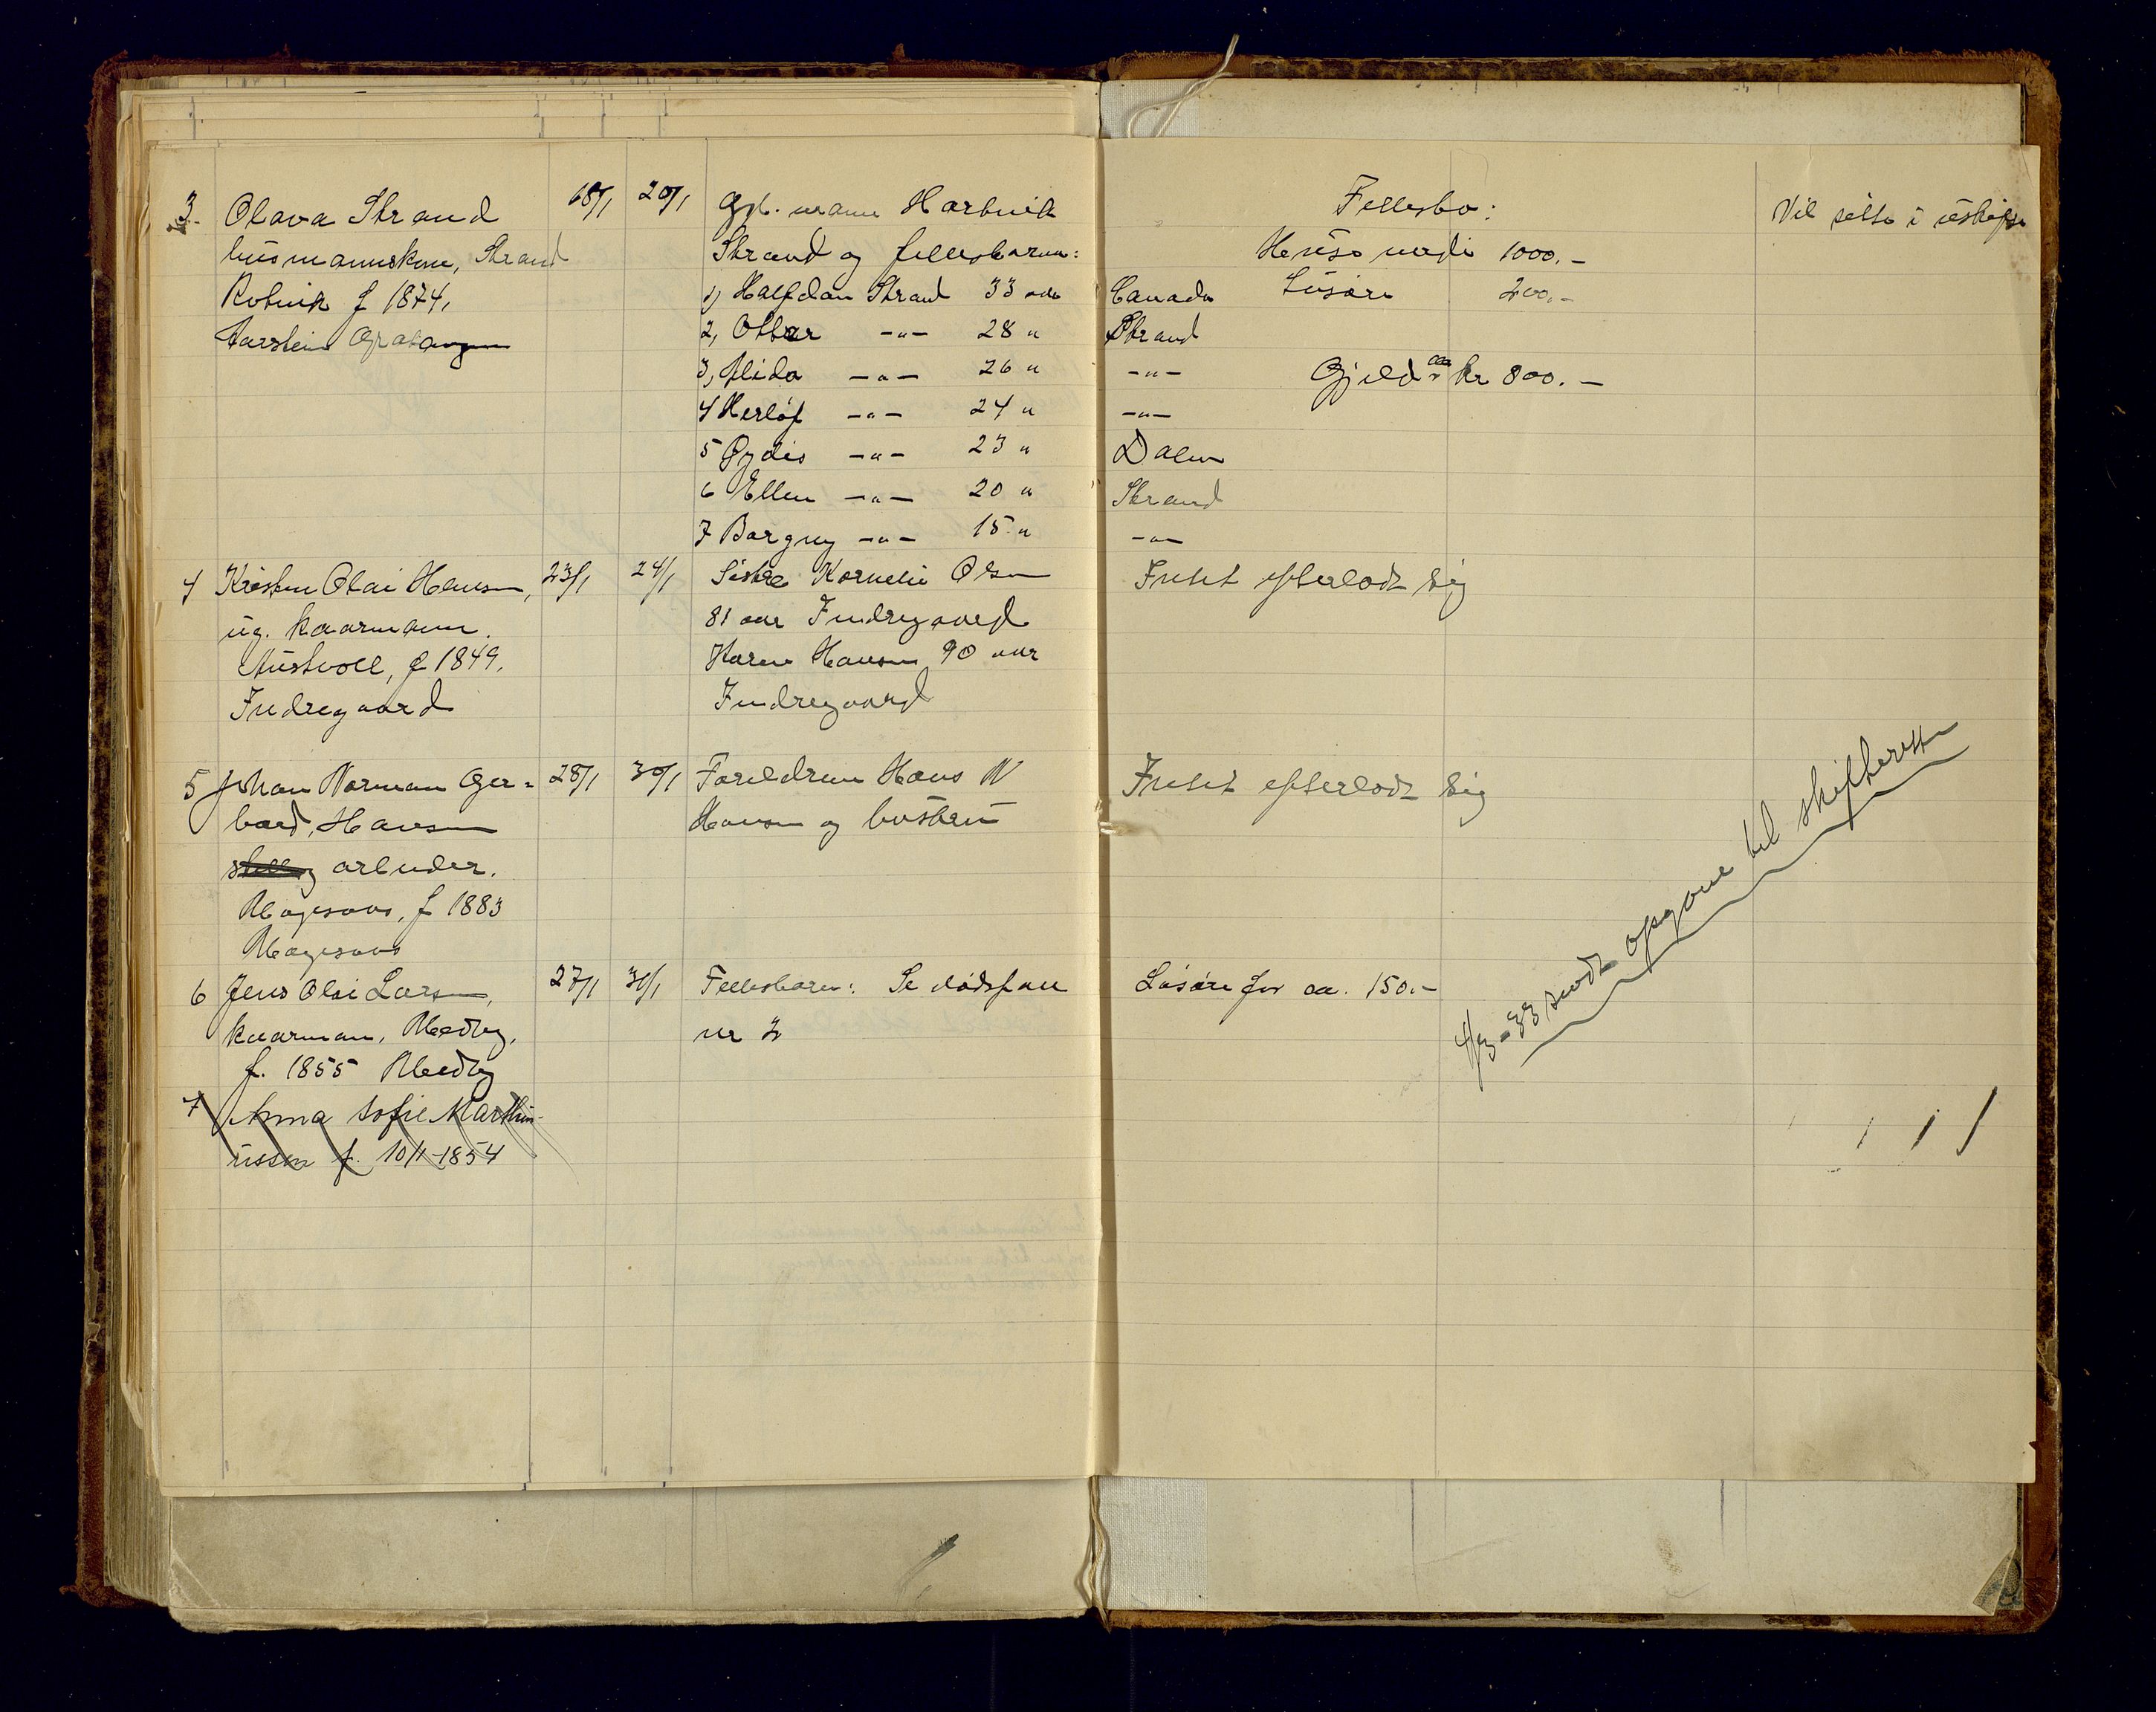 3. Olava Strand 18/1 20/1 Gift. mann Hartvik Fellesbo: Vil sitte i uskifte
husmannskone, Strand Strand og fellesbarn: Huses verdi 1000.-
Rotvik f 1874, 1, Halfdan Strand 33 aar Canada Løsøre 200.-
Aarstein Gratangen 2, Ottar -"- 28 " Strand
3, Alida -"- 26 " -"- Gjeld ca kr 800.-
4 Herlof -"- 24 " -"-
5 Gydis -"- 23 " Dalen
6 Ellen -"- 20 " Strand
7 Borgny -"- 15 " -"-
4 Kristen Olai Hansen, 23/1 24/1 Søstre Kornelie Olsen Intet efterlodt sig
ug. kaarmann. 81 aar Indregaard
Austvoll, f 1849. Karen Hansen 90 aar
Indregaard Indregaard
5 Johan Norman Ger= 28/1 30/1 Foreldrene Hans N Intet efterlodt sig
hard, Hansen Hansen og hustru
arbeider.
f 1883
6 Jens Olai Larsen, 27/1 30/1 Fellesbarn: Se dødsfall Løsøre for ca. 150.-
kaarman, Medby, nr 2
f. 1855 Medby
4/3-33 sendt opgave til skifteretten
7 Anna Sofie Marthin-
ussen f. 10/1-1854